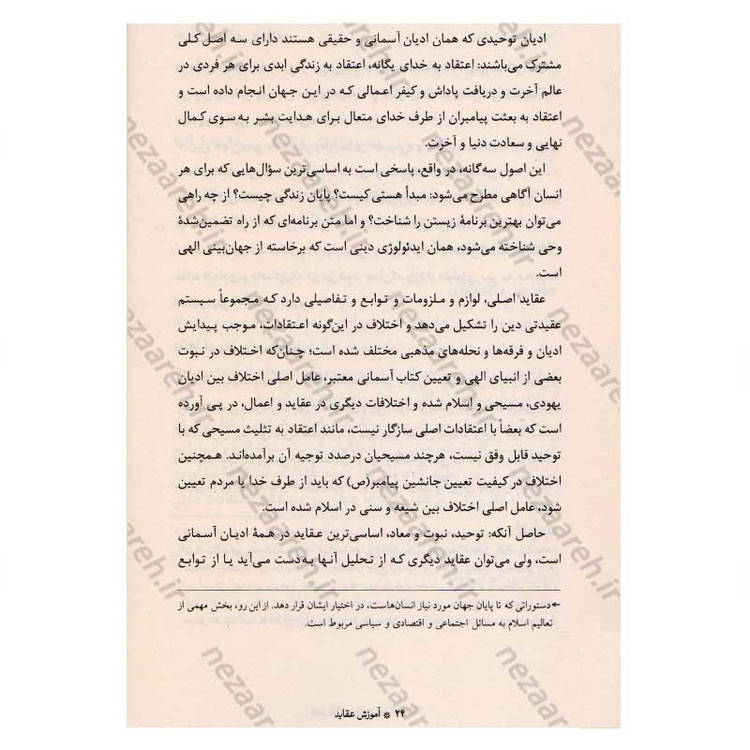 ادیان توحیدی که همان ادیان آسمانی و حقیقی هستند دارای سه اصل کلی
مشترک می‌باشند: اعتقاد به خدای یگانه، اعتقاد به زندگی ابدی برای هر فردی در
عالم آخرت و دریافت پاداش و کیفر اعمالی که در این جهان انجام داده است و
اعتقاد به بعثت پیامبران از طرف خدای متعال برای هدایت بشر به سوی کمال
نهایی و سعادت دنیا و آخرت.
این اصول سه‌گانه، در واقع، پاسخی است به اساسی‌ترین سؤال‌هایی که برای هر
انسان آگاهی مطرح می‌شود: مبدأ هستی کیست؟ پایان زندگی چیست؟ از چه راهی
می‌توان بهترین برنامهٔ زیستن را شناخت؟ و اما متن برنامه‌ای که از راه تضمین‌شدهٔ
وحی شناخته می‌شود، همان ایدئولوژی دینی است که برخاسته از جهان‌بینی الهی
است.
عقاید اصلی، لوازم و ملزومات و توابع و تفاصیلی دارد که مجموعاً سیستم
عقیدتی دین را تشکیل می‌دهد و اختلاف در این‌گونه اعتقادات، موجب پیدایش
ادیان و فرقه‌ها و نحله‌های مذهبی مختلف شده است؛ چنان‌که اختلاف در نبوت
بعضی از انبیای الهی و تعیین کتاب آسمانی معتبر، عامل اصلی اختلاف بین ادیان
یهودی، مسیحی و اسلام شده و اختلافات دیگری در عقاید و اعمال، در پی آورده
است که بعضاً با اعتقادات اصلی سازگار نیست، مانند اعتقاد به تثلیث مسیحی که با
توحید قابل وفق نیست، هرچند مسیحیان درصدد توجیه آن برآمده‌اند. همچنین
اختلاف در کیفیت تعیین جانشین پیامبر(ص) که باید از طرف خدا یا مردم تعیین
شود، عامل اصلی اختلاف بین شیعه و سنی در اسلام شده است.
حاصل آنکه: توحید، نبوت و معاد، اساسی‌ترین عقاید در همهٔ ادیان آسمانی
است، ولی می‌توان عقاید دیگری که از تحلیل آنها به‌دست می‌آید یا از توابع
←دستوراتی که تا پایان جهان مورد نیاز انسان‌هاست، در اختیار ایشان قرار دهد. از این رو، بخش مهمی از
تعالیم اسلام به مسائل اجتماعی و اقتصادی و سیاسی مربوط است.
۲۴ * آموزش عقاید
nezaareh.ir